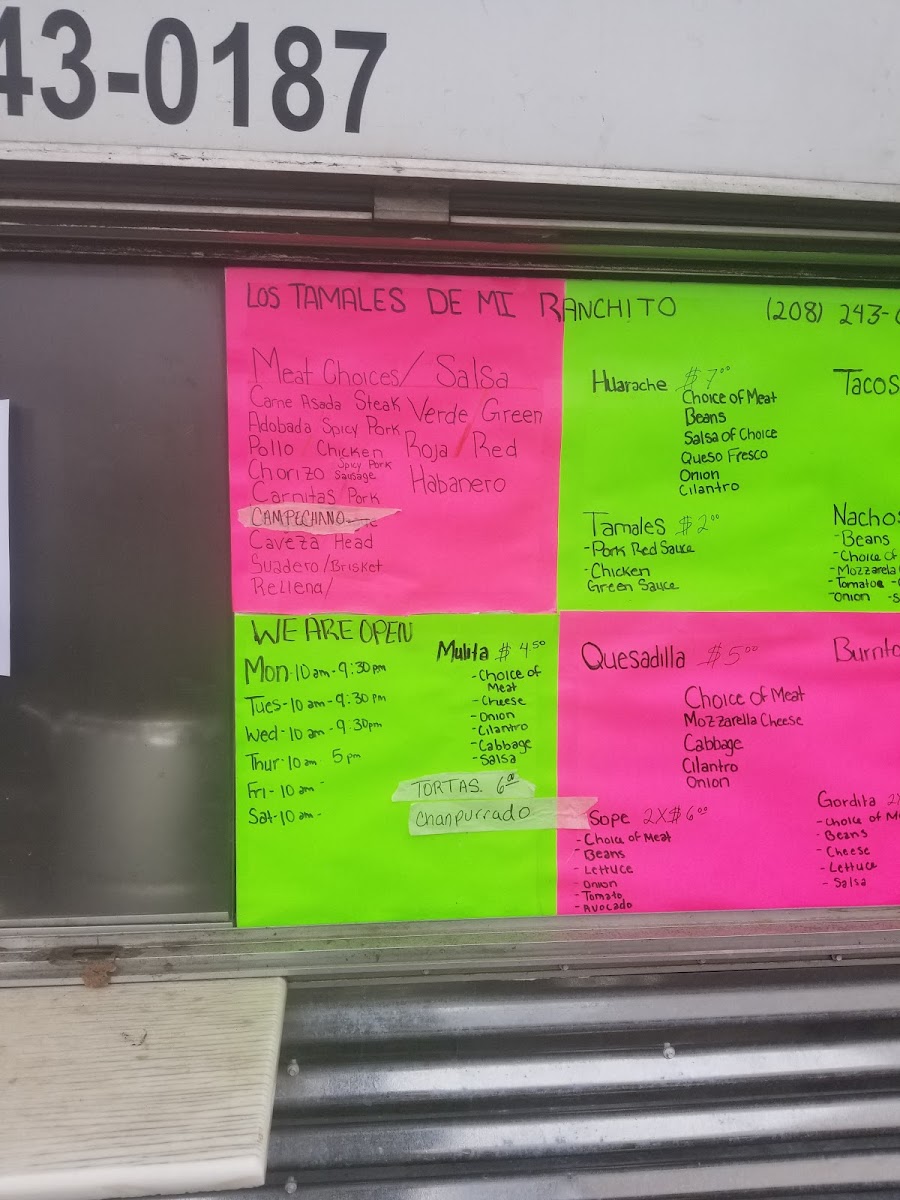 43-0187
LOS TAMALES DE MI RANCHITO
(208) 243-0
Meat Choices/ Salsa
Carne Asada Steak
Adobada Spicy Pork
Pollo / Chicken
Chorizo Spicy Pork Sausage
Carnitas Pork
CAMPECHANO
Caveza Head
Suadero/Brisket
Rellena/
Verde/Green
Roja / Red
Habanero
Huarache $7.00
Choice of Meat
Beans
Salsa of Choice
Queso Fresco
Onion
Cilantro
Tamales $2.00
-Pork Red Sauce
-Chicken
Green Sauce
Tacos
Nachos
-Beans
-Choice of
-Mozzarela
-Tomatoe -
-Onion -S
WE ARE OPEN
Mon-10am-9:30pm
Tues-10am-9:30pm
Wed-10am-9:30pm
Thur-10am 5pm
Fri-10am-
Sat-10am-
Mulita $4.50
-Choice of
Meat
-Cheese
-Onion
-Cilantro
-Cabbage
-Salsa
TORTAS. 6.00
Chanpurrado
Quesadilla $5.00
Choice of Meat
Mozzarella Cheese
Cabbage
Cilantro
Onion
Sope 2X$6.00
-Choice of Meat
-Beans
-Lettuce
-Onion
-Tomato
-Avocado
Burrito
Gordita 2
-Choice of M
-Beans
-Cheese
-Lettuce
-Salsa